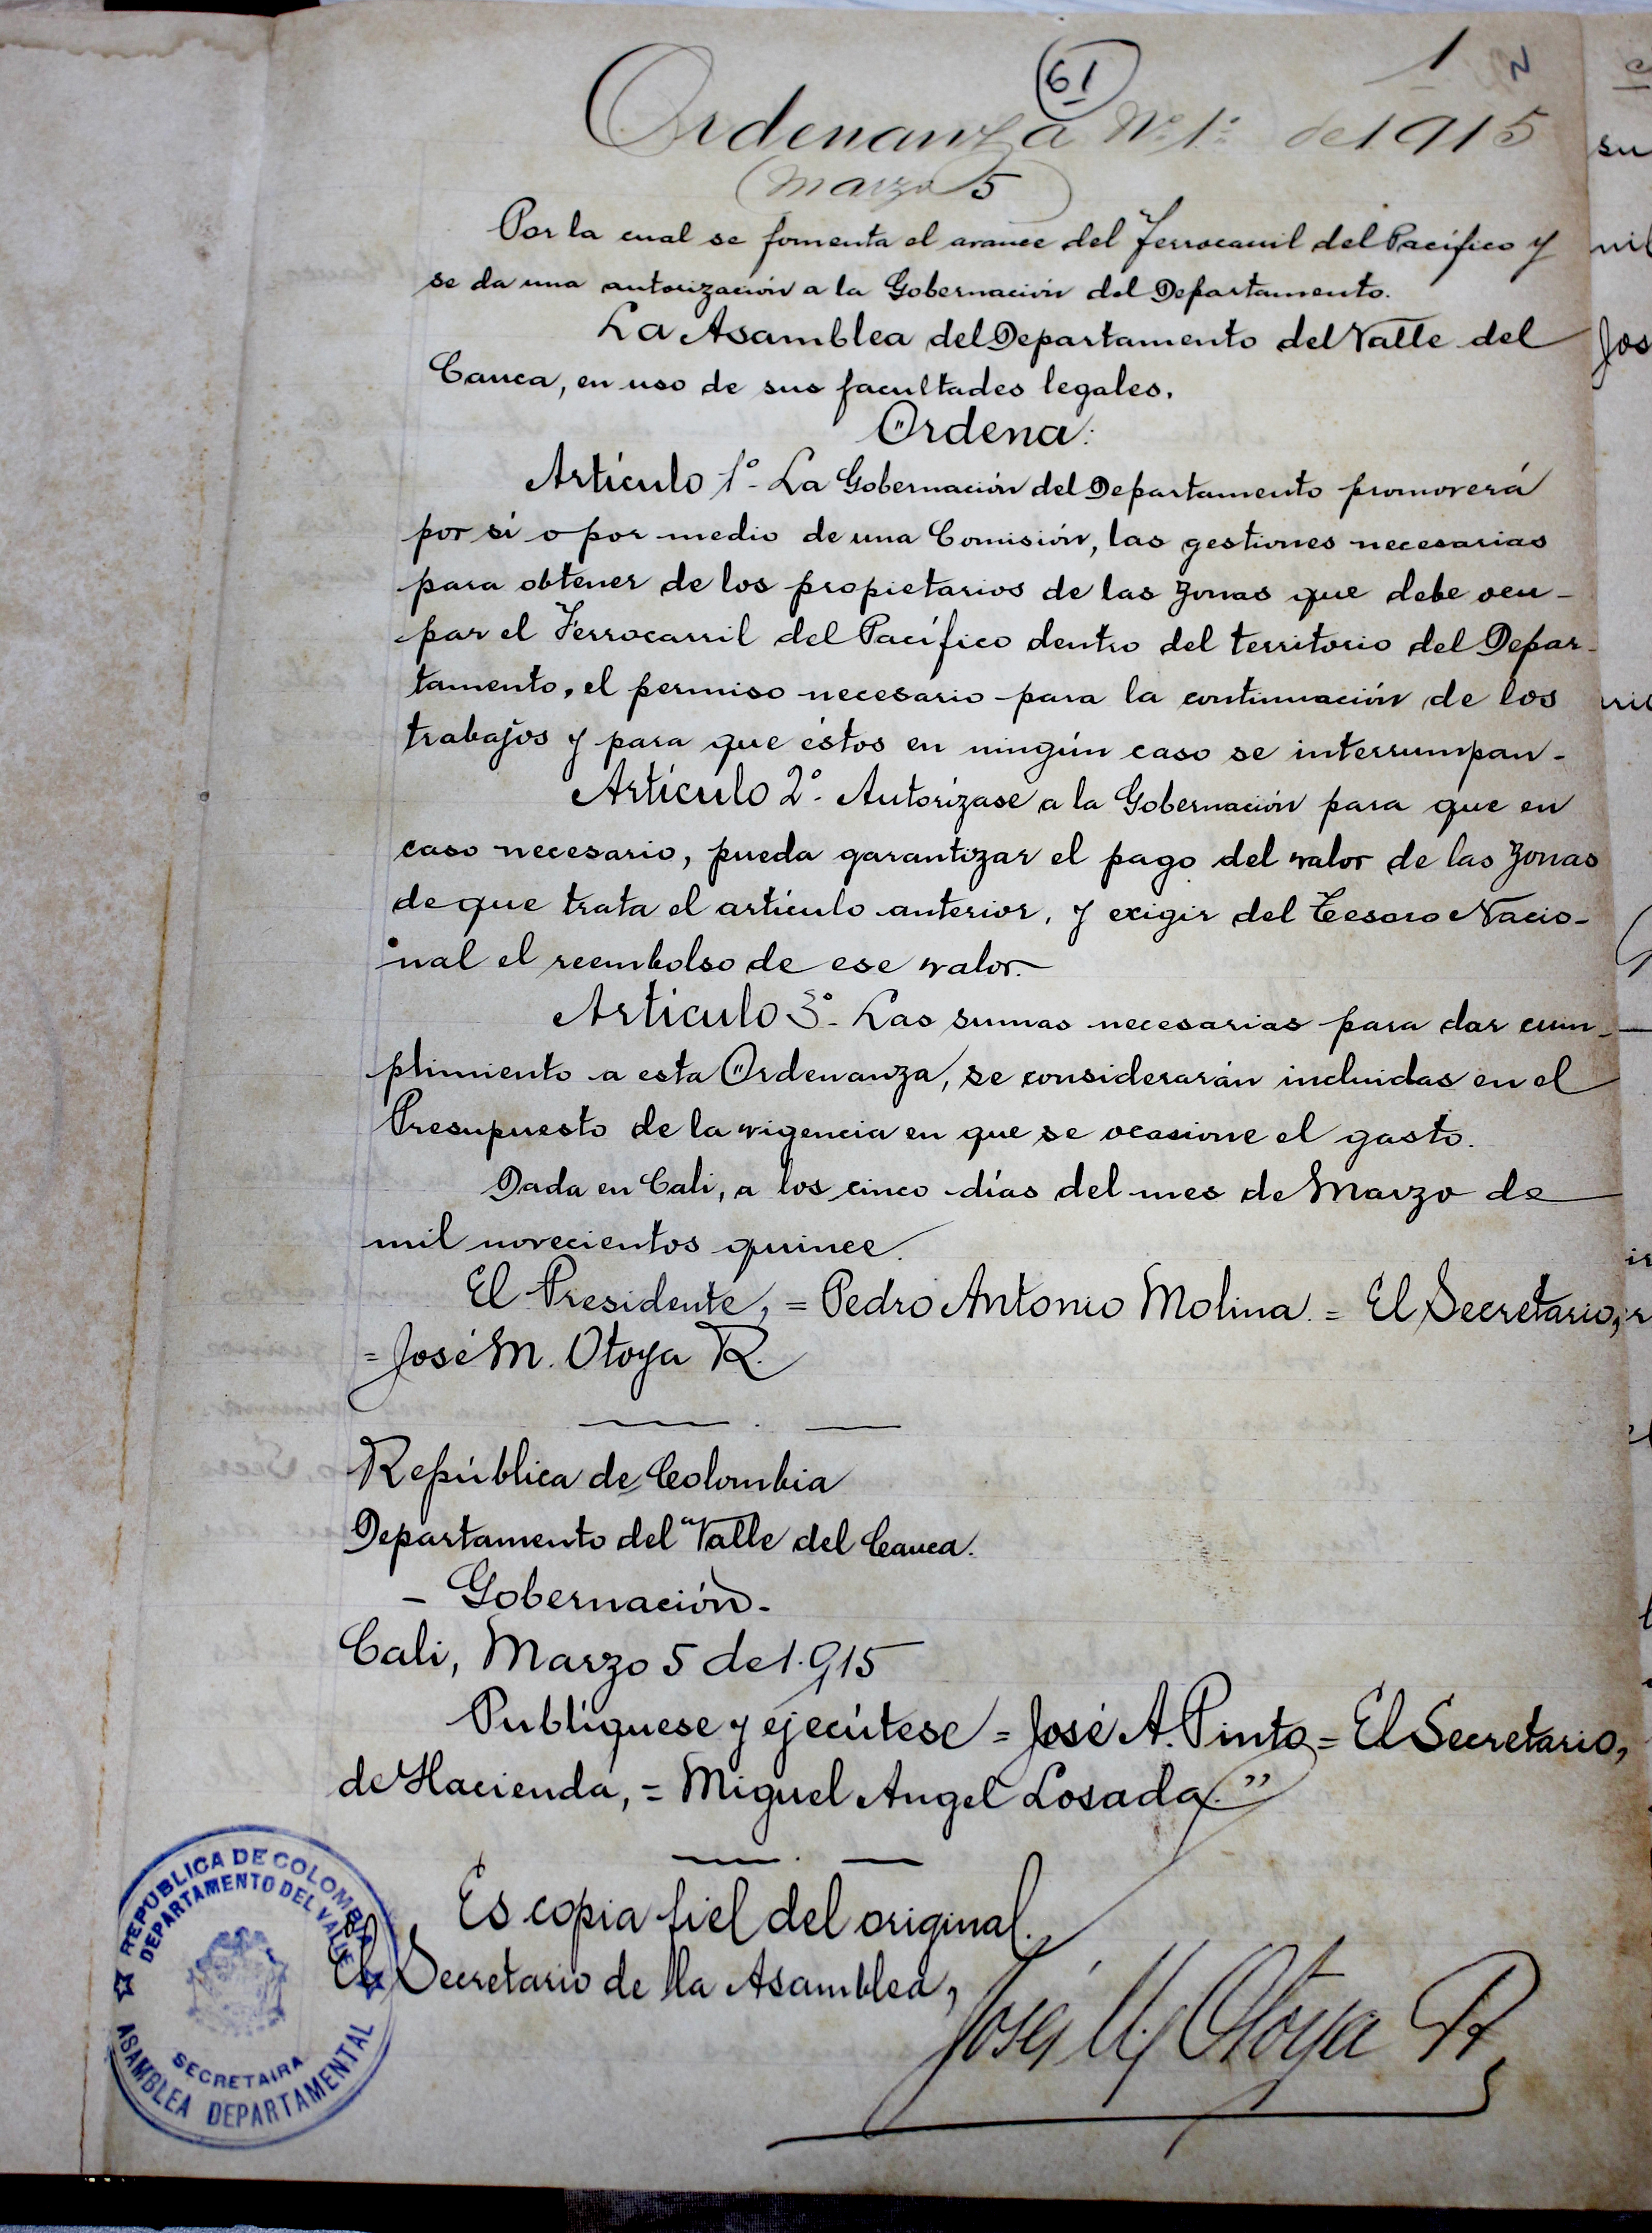 61
1
Ordenanza Nº 1º de 1915
(Marzo 5)
Por la cual se fomenta el avance del Ferrocarril del Pacífico y
se da una autorización a la Gobernación del Departamento.
La Asamblea del Departamento del Valle del
Cauca, en uso de sus facultades legales.
Ordena:
Artículo 1º - La Gobernación del Departamento promoverá
por sí o por medio de una Comisión, las gestiones necesarias
para obtener de los propietarios de las zonas que debe ocu-
par el Ferrocarril del Pacífico dentro del territorio del Depar-
tamento, el permiso necesario para la continuación de los
trabajos y para que éstos en ningún caso se interrumpan.
Artículo 2º - Autorízase a la Gobernación para que en
caso necesario, pueda garantizar el pago del valor de las zonas
de que trata el artículo anterior, y exigir del Tesoro Nacio-
nal el reembolso de ese valor.
Artículo 3º - Las sumas necesarias para dar cum-
plimiento a esta Ordenanza, se considerarán incluidas en el
Presupuesto de la vigencia en que se ocasione el gasto.
Dada en Cali, a los cinco días del mes de Marzo de
mil novecientos quince.
El Presidente, = Pedro Antonio Molina. = El Secretario,
= José M. Otoya R.
República de Colombia
Departamento del Valle del Cauca.
- Gobernación -
Cali, Marzo 5 de 1.915
Publíquese y ejecútese = José A. Pinto = El Secretario,
de Hacienda, = Miguel Angel Losada."
Es copia fiel del original.
El Secretario de la Asamblea,
José M. Otoya R
REPUBLICA DE COLOMBIA
DEPARTAMENTO DEL VALLE
SECRETAIRA
ASAMBLEA DEPARTAMENTAL